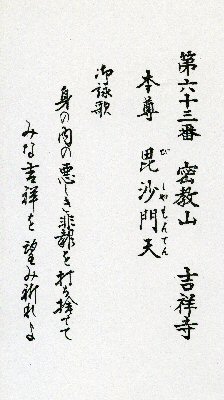 第六十三番 密教山 吉祥寺
本尊 毘沙門天
び しやもんてん
御詠歌
身の内の悪しき非報を打ち捨てて
みな吉祥を望み祈れよ